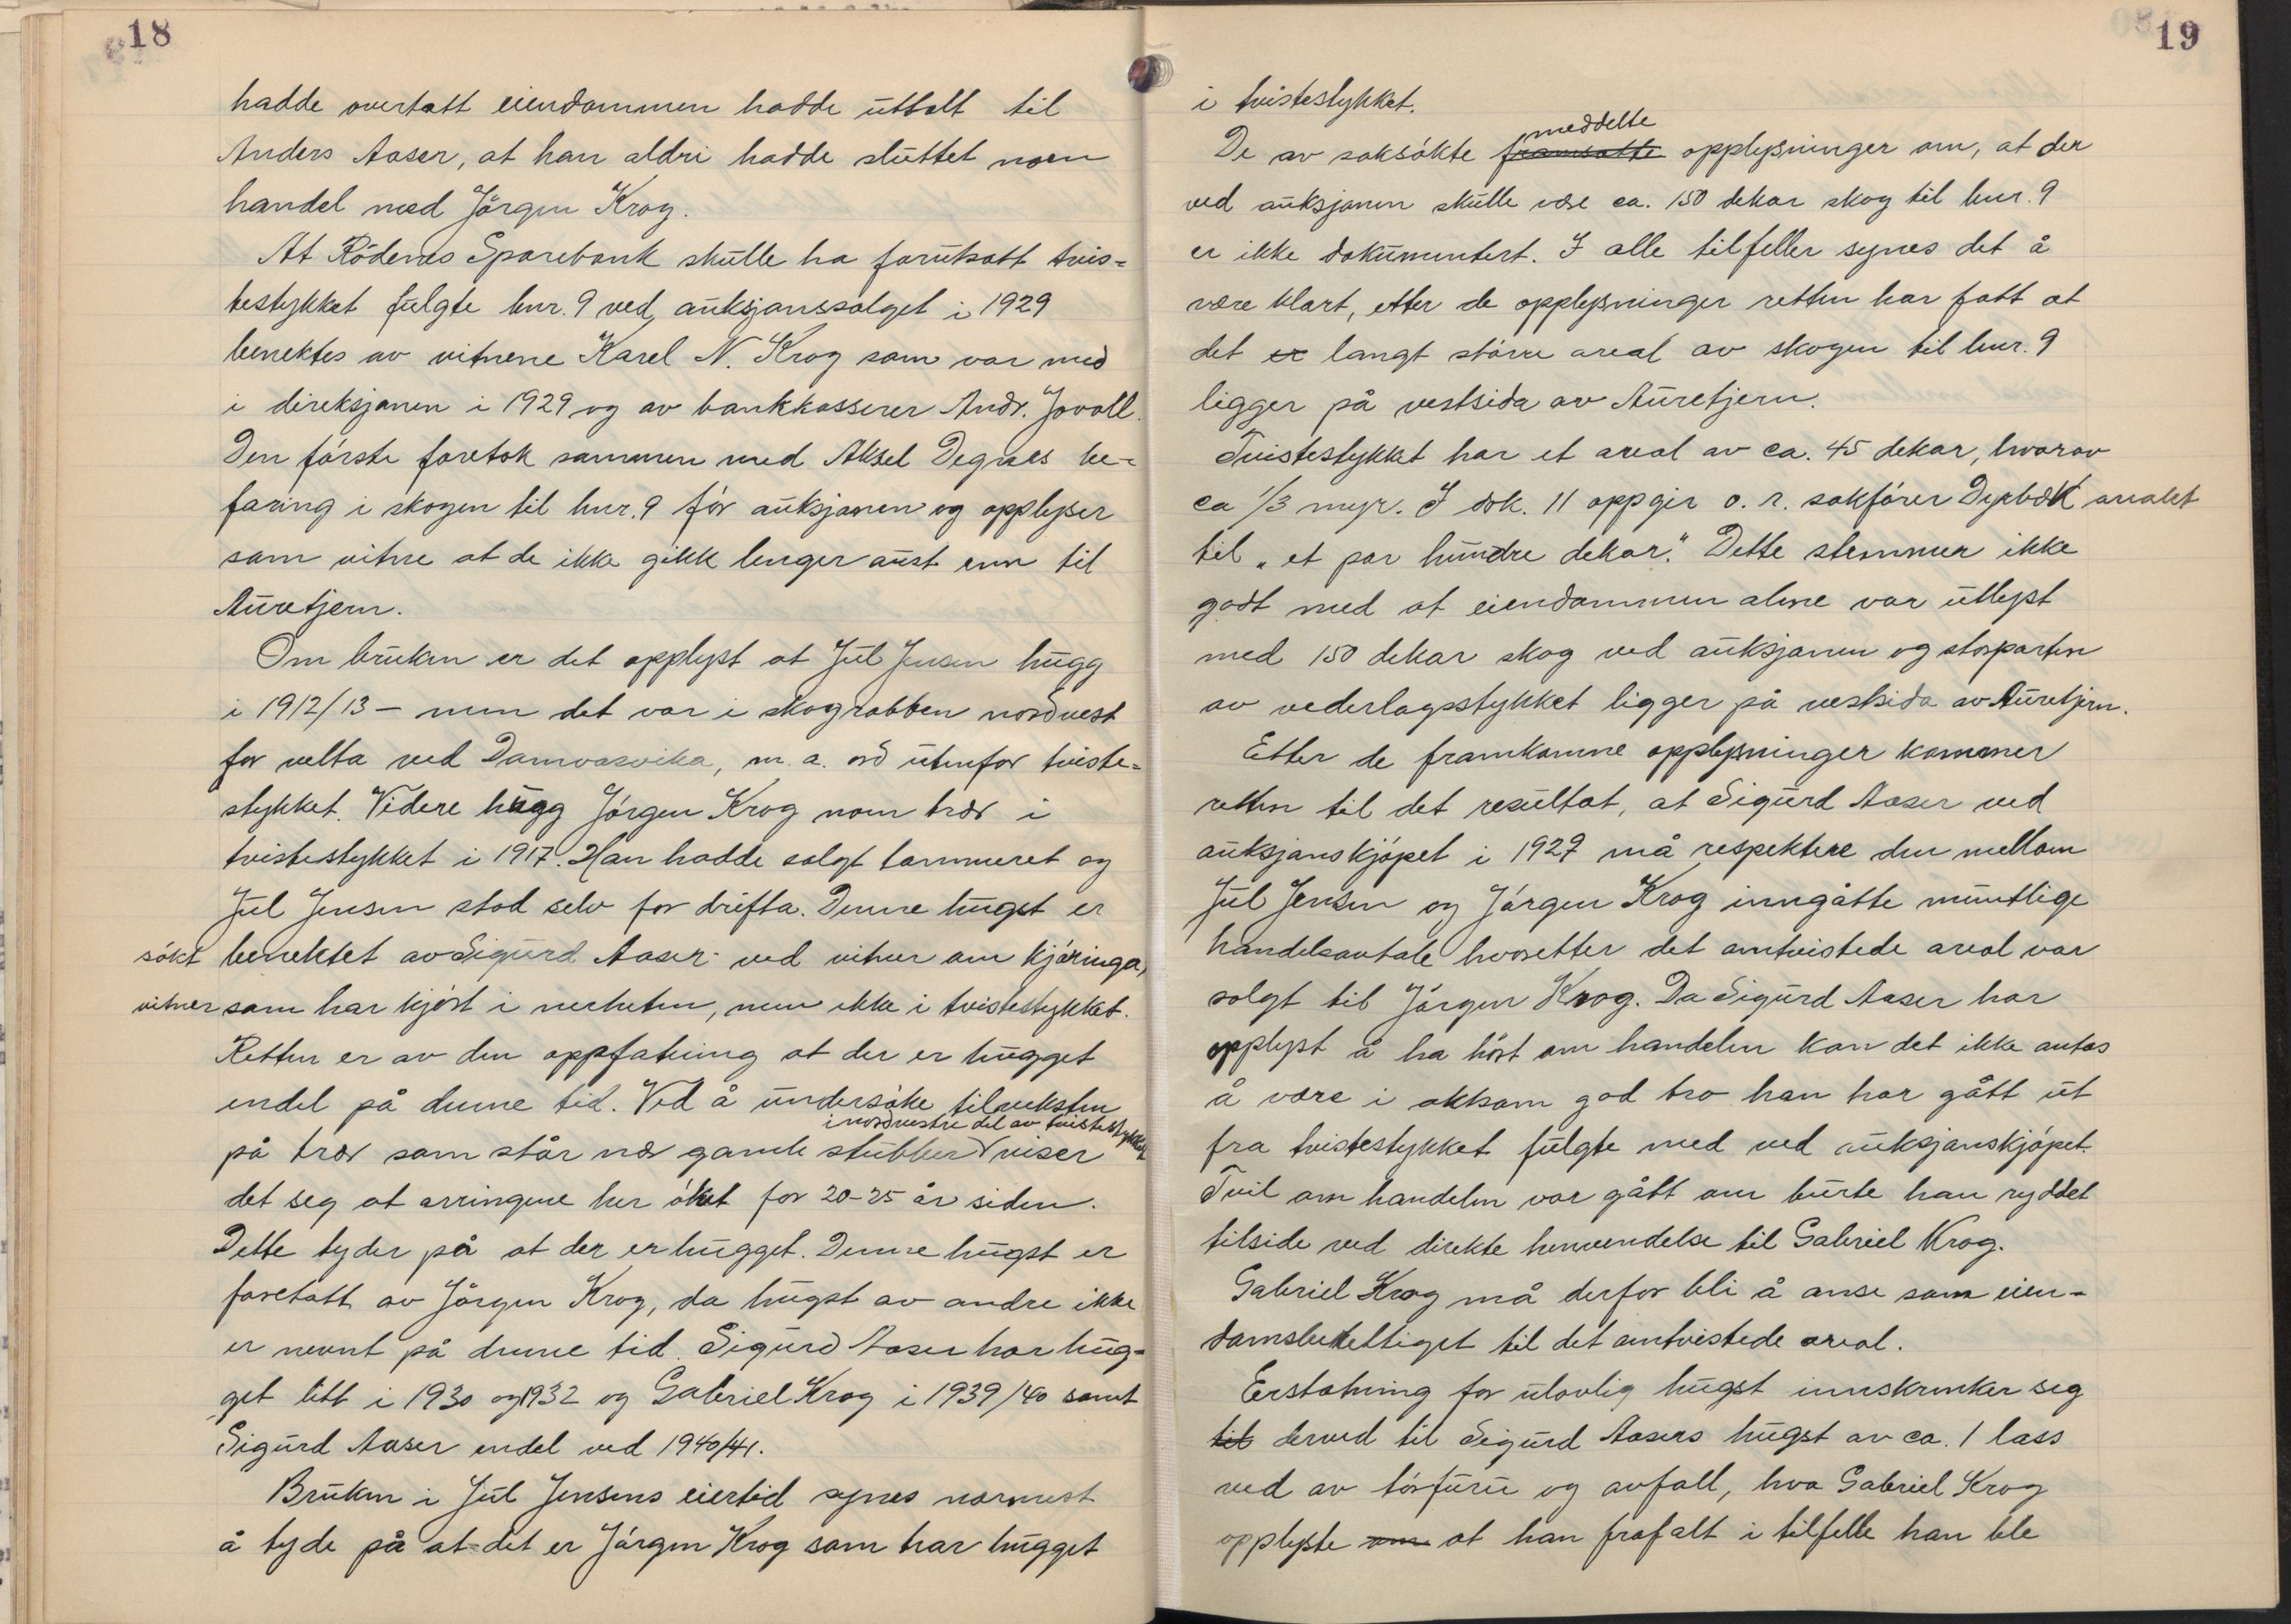 18
hadde overtatt eiendommen hadde uttalt til
Anders Aaser, at han aldri hadde sluttet noen
handel med Jörgen Krog.
At Rödenes Sparebank skulle ha forutsatt tvis=
testykket fulgte bnr. 9 ved auksjonssalget i 1929
benektes av vitnene Karel N. Krog som var med
i direksjonen i 1929 og av bankkasserer Andr. Jovall.
Den förste foretok sammen med Aksel Degnes be=
faring i skogen til bnr. 9 för auksjonen og opplyser
som vitne at de ikke gikk lenger aust enn til
Auretjern.
Om bruken er det opplyst at Jul Jensen hugg
i 1912/13 – men det var i skograbben nordvest
for velta ved Damvasvika, m. a. ord utenfor tviste=
stykket. Videre hugg Jörgen Krog noen trær i
tvistestykket i 1917. Han hadde solgt tömmeret og
Jul Jensen stod selv for drifta. Denne hugst er
sökt benektet av Sigurd Aaser ved vitner om kjöringa,
vitner som har kjört i nerheten, men ikke i tvistestykket.
Retten er av den oppfatning at der er hugget
endel på denne tid. Ved å undersöke tilveksten
i nordvestre del av tvistestykket
på trær som står nær gamle stubber viser
det seg at arringene her öket for 20-25 år siden.
Dette tyder på at der er hugget. Denne hugst er
foretatt av Jörgen Krog, da hugst av andre ikke
er nevnt på denne tid. Sigurd Aaser har hug=
get litt i 1930 og 1932 og Gabriel Krog i 1939/40 samt
Sigurd Aaser endel ved 1940/41.
Bruken i Jul Jensens eiertid synes nærmest
å tyde på at det er Jörgen Krog som har hugget
19
i tvistestykket.
meddelte
De av saksökte framsatte opplysninger om, at der
ved auksjonen skulle være ca. 150 dekar skog til bnr. 9
er ikke dokumentert. I alle tilfeller synes det å
være klart, etter de opplysninger retten har fått at
det er langt större areal av skogen til bnr. 9
ligger på vestsida av Auretjern.
Tvistestykket har et areal av ca. 45 dekar, hvorav
ca 1/3 myr. I dok. 11 oppgir o. r. sakförer Dyrbæk arealet
til „et par hundre dekar." Dette stemmer ikke
godt med at eiendommen alene var utlyst
med 150 dekar skog ved auksjonen og storparten
av vederlagsstykket ligger på vestsida av Auretjern.
Etter de framkomne opplysninger kommer
retten til det resultat, at Sigurd Aaser ved
auksjonskjöpet i 1929 må respektere den mellom
Jul Jensen og Jörgen Krog inngåtte muntlige
handelsavtale hvoretter det omtvistede areal var
solgt til Jörgen Krog. Da Sigurd Aaser har
opplyst å ha hört om handelen kan det ikke antas
å være i aktsom god tro han har gått ut
fra tvistestykket fulgte med ved auksjonskjöpet.
Tvil om handelen var gått om burte han ryddet
tilside ved direkte henvendelse til Gabriel Krog.
Gabriel Krog må derfor bli å anse som eien=
domsberettiget til det omtvistede areal.
Erstatning for ulovlig hugst innskrenker seg
til derved til Sigurd Aasers hugst av ca. 1 lass
ved av törfuru og avfall, hva Gabriel Krog
opplyste om at han frafalt i tilfelle han ble